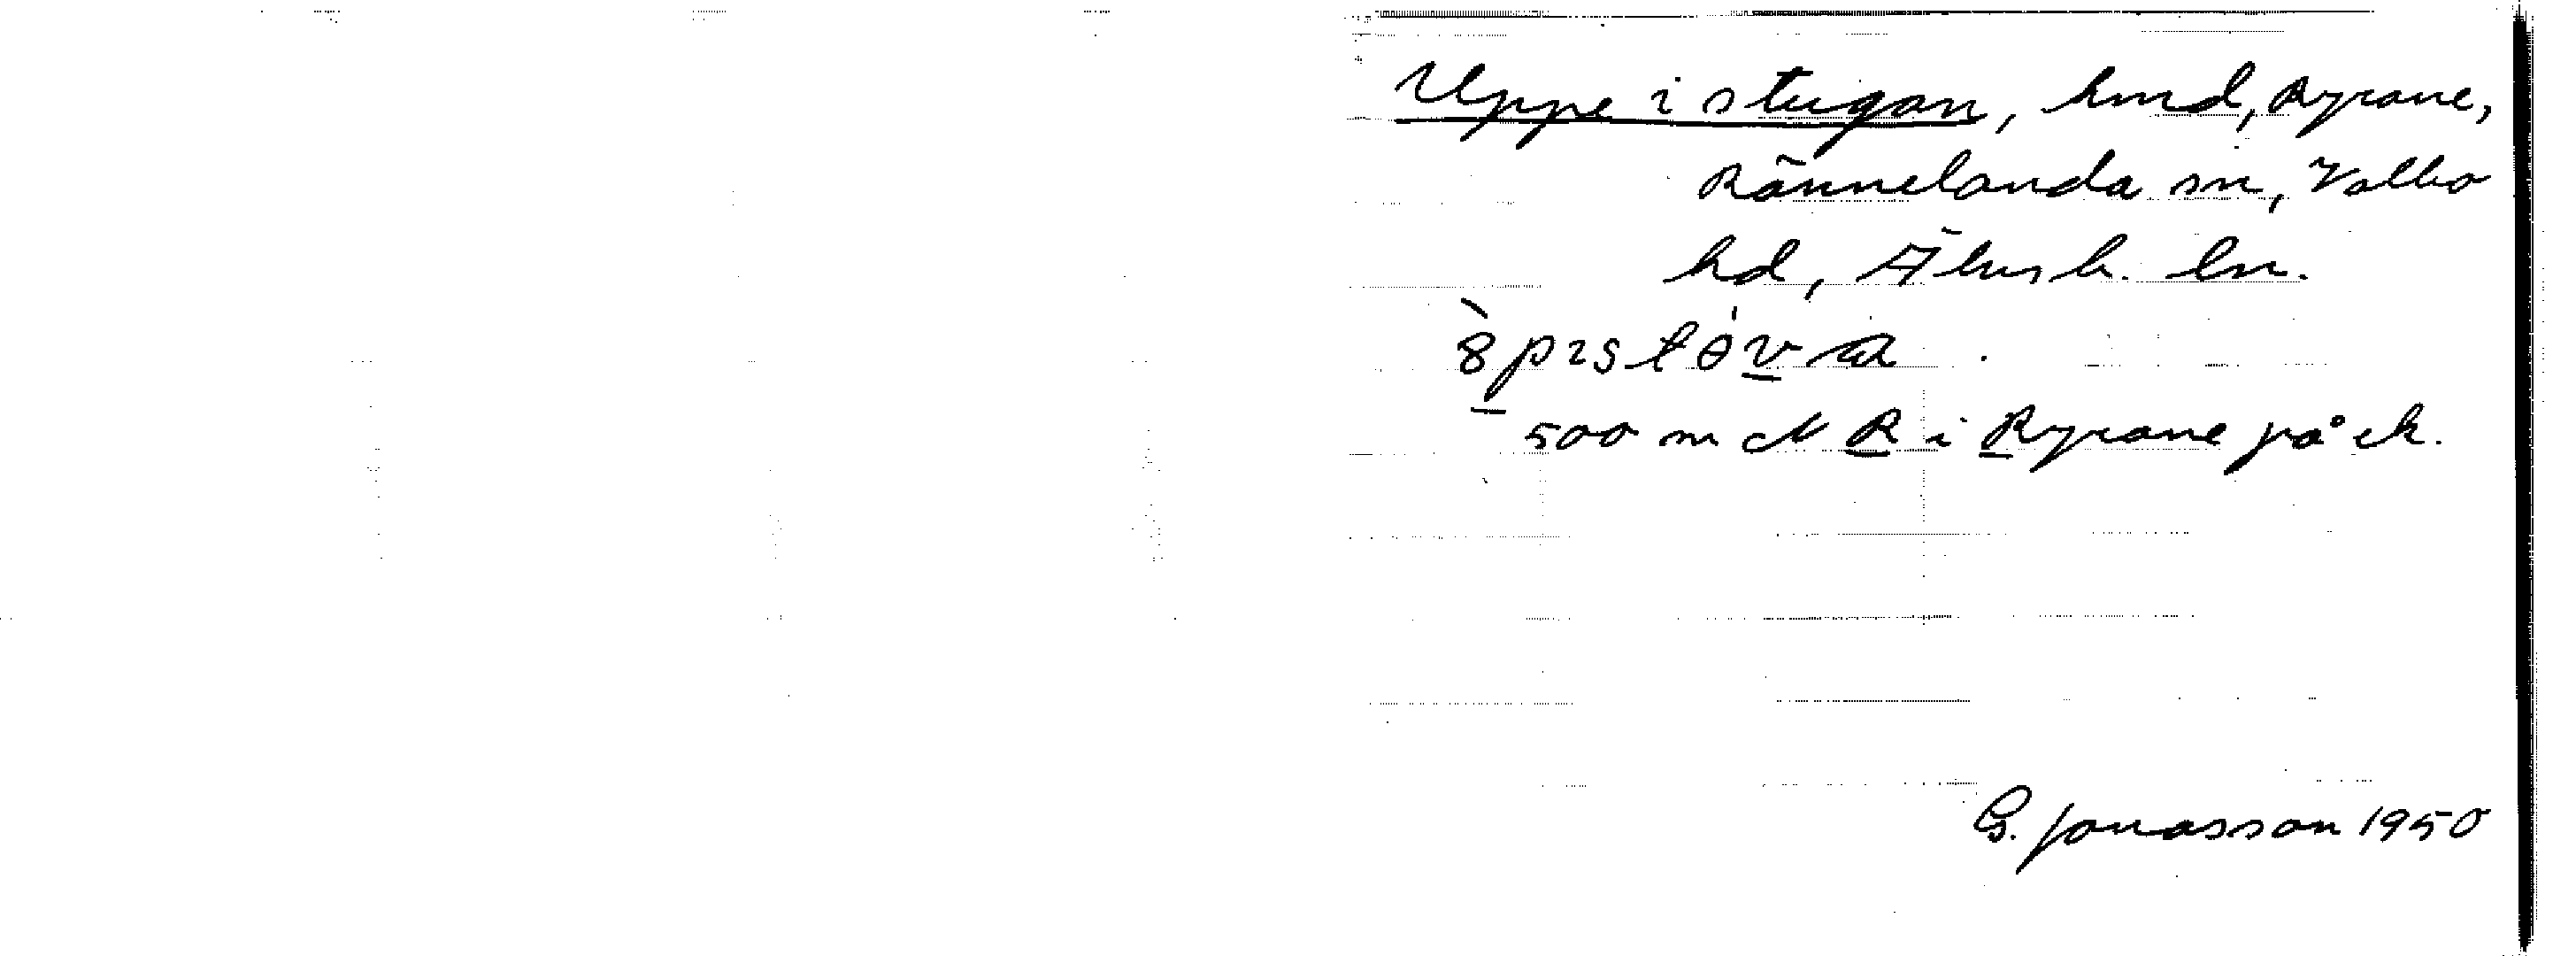 Uppe i stugan, hmd, Ryrane,
Rännelanda sn, Valbo
hd, Älvsb. ln.
500 m N R i Ryrane på ek.
G. Jonasson 1950